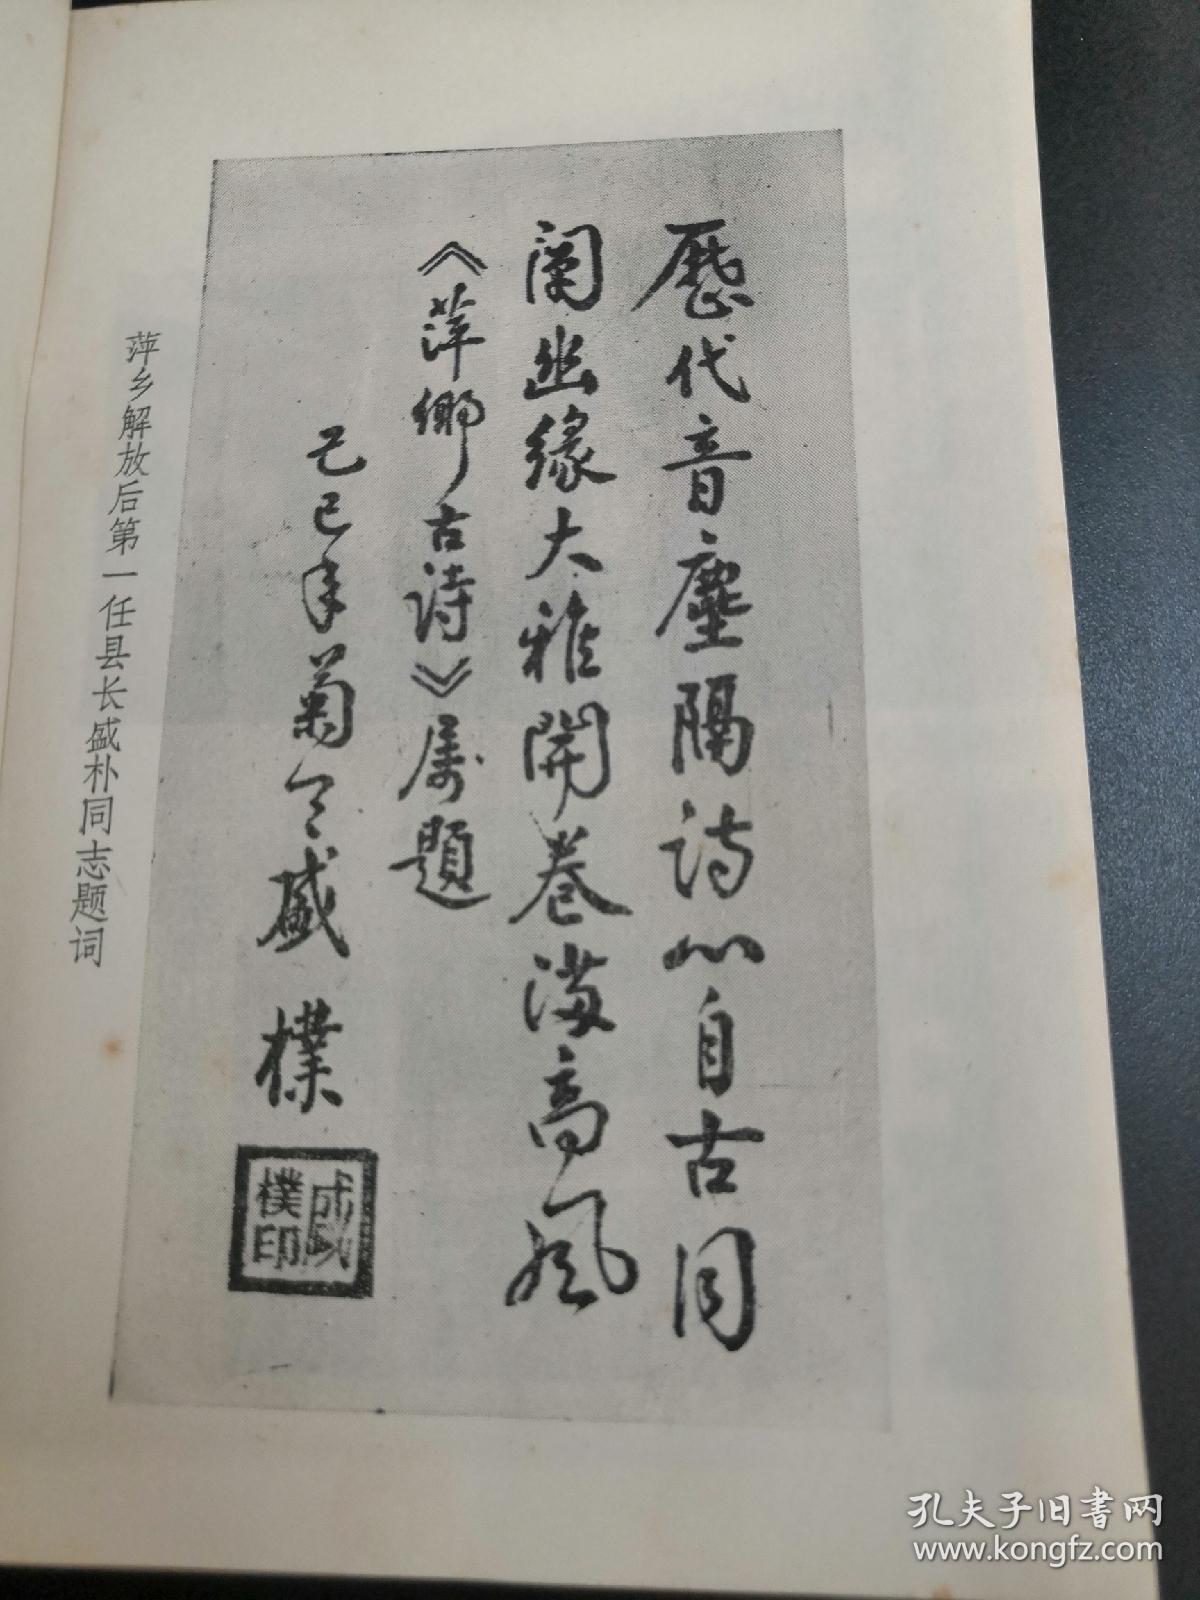 歷代音塵隔詩心自古同
阐幽缘大雅開卷满高風
《萍鄉古诗》属題
己巳年菊月盛樸
盛樸印
萍乡解放后第一任县长盛朴同志题词
孔夫子旧书网
www.kongfz.com